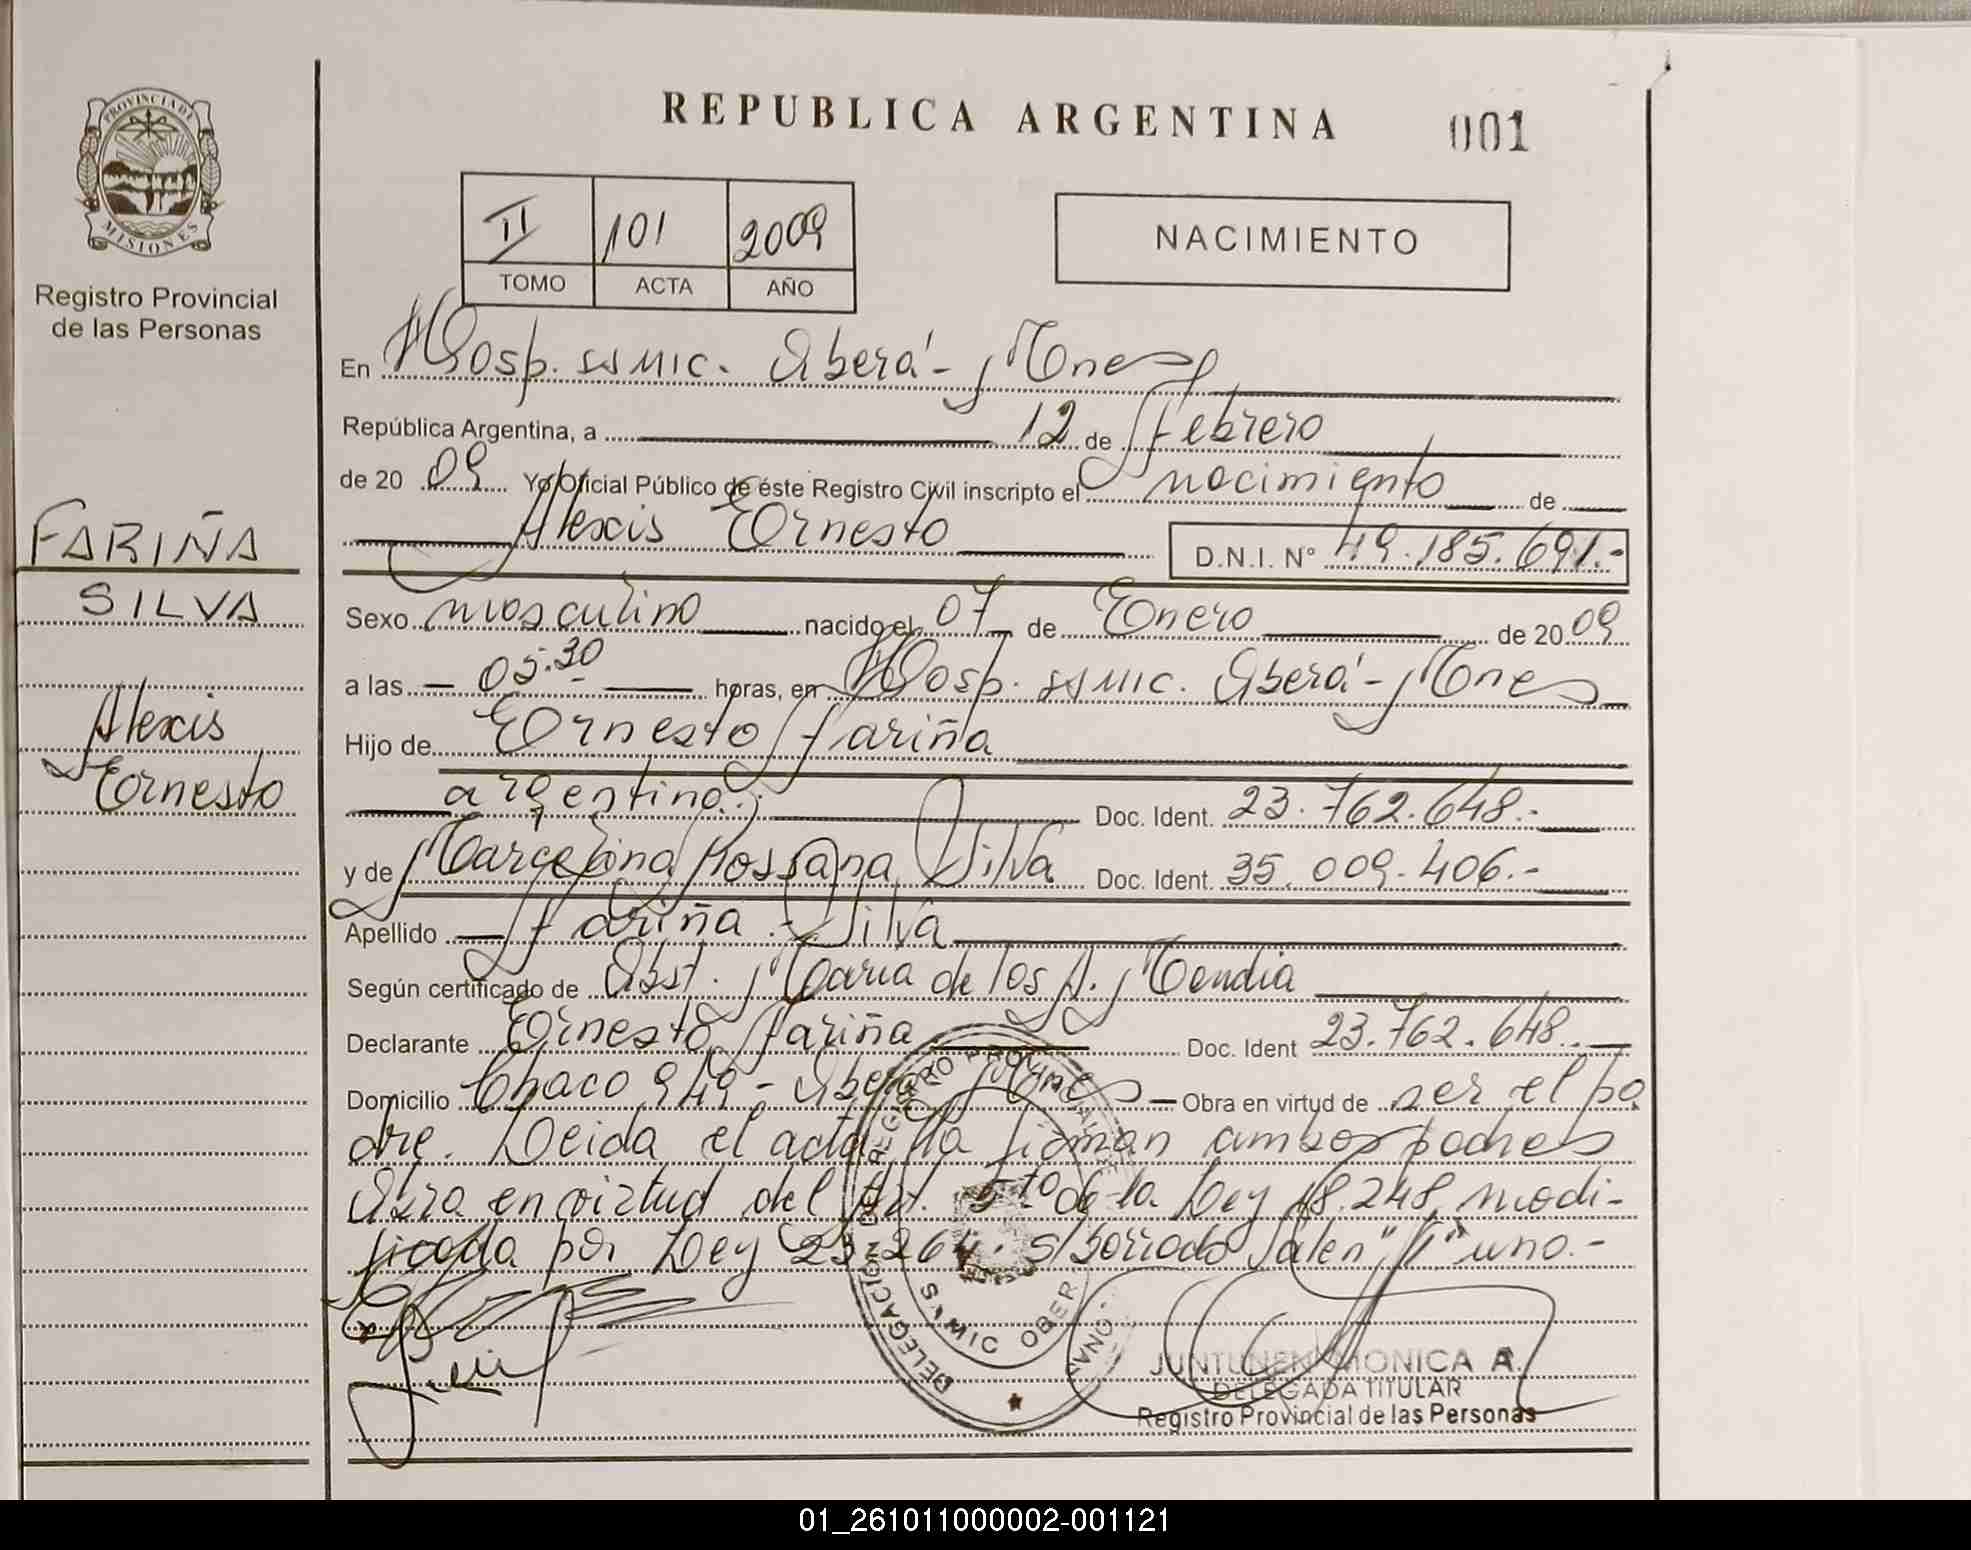 REPUBLICA ARGENTINA
001
PROVINCIA DE
MISIONES
Registro Provincial
de las Personas
II 101 2009
TOMO ACTA AÑO
NACIMIENTO
En Hosp. SAMIC. Oberá - Mnes
República Argentina, a 12 de Febrero
de 20 09 Yo Oficial Público de éste Registro Civil inscripto el nacimiento de
Alexis Ernesto D.N.I. N° 49.185.691.-
FARIÑA
SILVA
Alexis
Ernesto
Sexo masculino nacido el 07 de Enero de 20 09
a las 05.30 horas, en Hosp. SAMIC. Oberá - Mnes
Hijo de Ernesto Fariña
argentino. Doc. Ident. 23.762.648.-
y de Marcelina Rossana Silva Doc. Ident. 35.009.406.-
Apellido Fariña - Silva
Según certificado de Obst. María de los A. Mendia
Declarante Ernesto Fariña Doc. Ident 23.762.648.
Domicilio Chaco 949 - Oberá Mnes Obra en virtud de ser el pa
dre. Leida el acta la firman ambos padres
Obra en virtud del Art. 5to de la Ley 18.248 modi-
ficada por Ley 23.264. S/borrado Valen "1" uno.-
REGISTRO PROVINCIAL DE
DELEGACION
SAMIC OBER
JUNTUNEN MONICA A.
DELEGADA TITULAR
Registro Provincial de las Personas
01_261011000002-001121